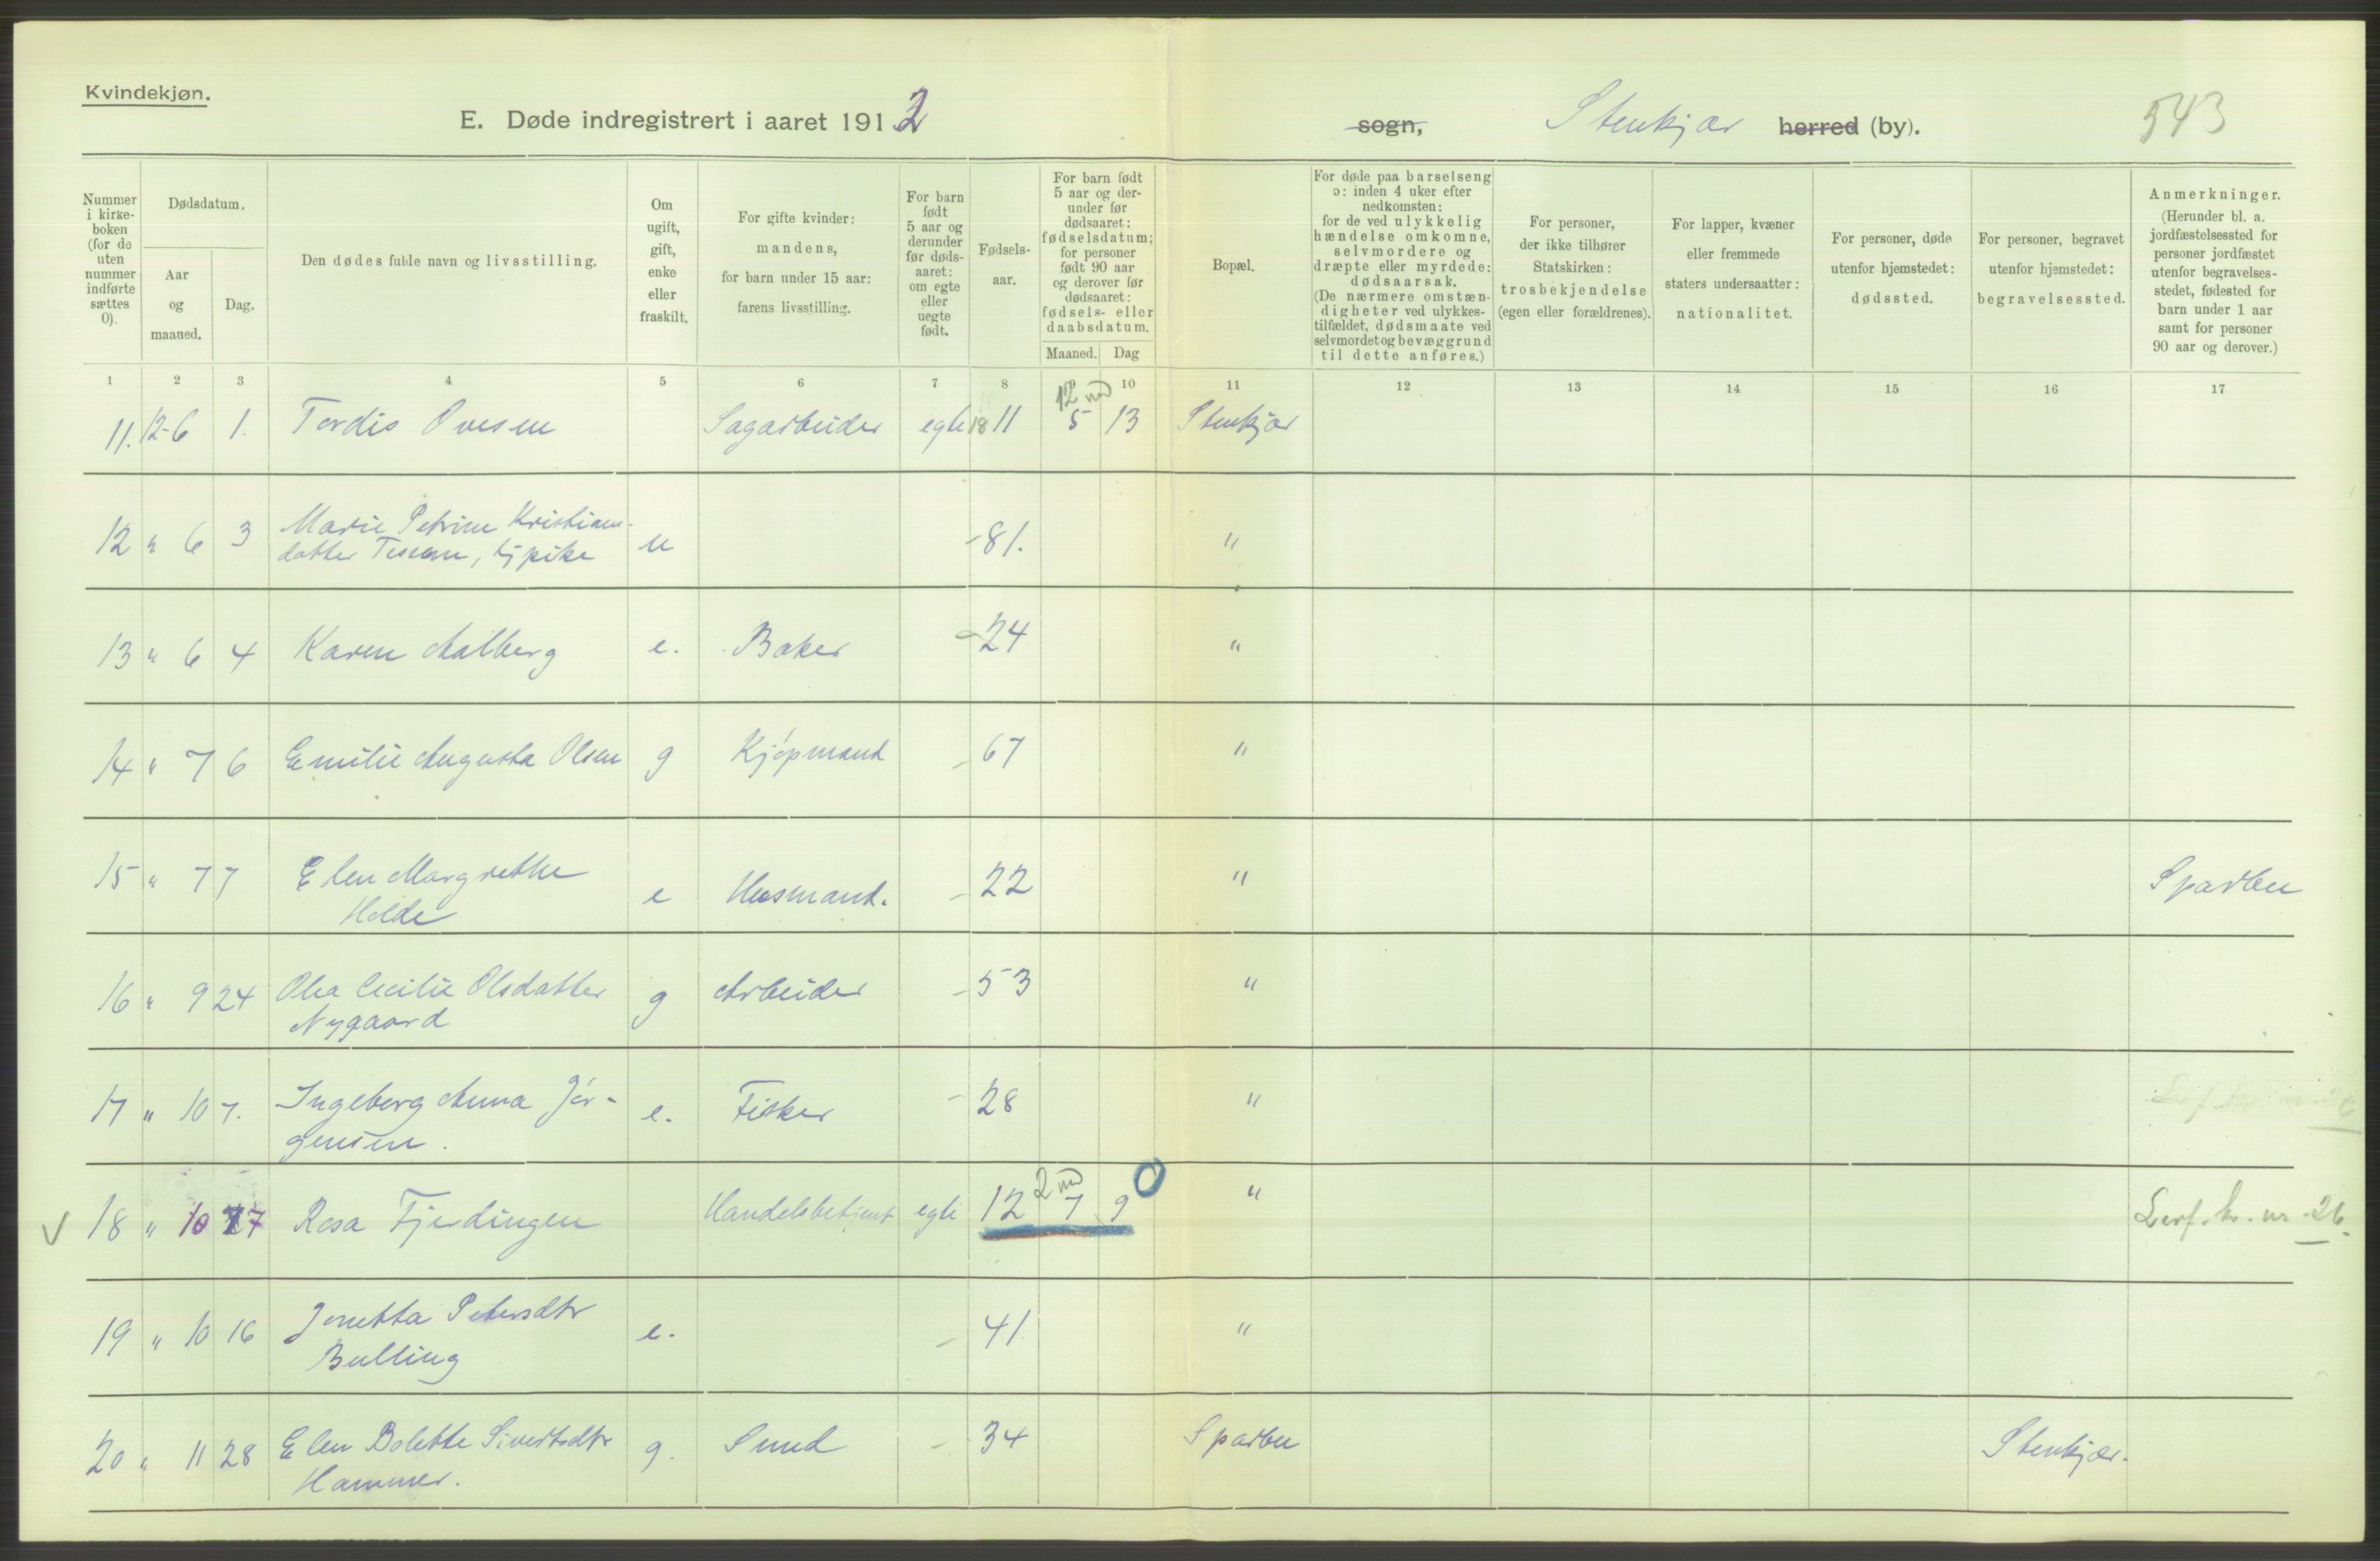 Kvindekjøn.
E. Døde indregistrert i aaret 1912
sogn, Stenkjær herred (by). 543
Nummer i kirke-boken (for de uten nummer indførte sættes 0).
Dødsdatum.
Aar og maaned.
Dag.
Den dødes fulde navn og livsstilling.
Om ugift, gift, enke eller fraskilt.
For gifte kvinder: mandens, for barn under 15 aar: farens livsstilling.
For barn født 5 aar og derunder før døds-aaret: om egte eller uegte født.
Fødsels-aar.
For barn født 5 aar og der-under før dødsaaret: fødselsdatum; for personer født 90 aar og derover før dødsaaret: fødsels- eller daabsdatum.
Maaned. Dag
Bopæl.
For døde paa barselseng ɔ: inden 4 uker efter nedkomsten: for de ved ulykkelig hændelse omkomne, selvmordere og dræpte eller myrdede: dødsaarsak. (De nærmere omstæn-digheter ved ulykkes-tilfældet, dødsmaate ved selvmordet og bevæggrund til dette anføres.)
For personer, der ikke tilhører Statskirken: trosbekjendelse (egen eller forældrenes).
For lapper, kvæner eller fremmede staters undersaatter: nationalitet.
For personer, døde utenfor hjemstedet: dødssted.
For personer, begravet utenfor hjemstedet: begravelsessted.
Anmerkninger. (Herunder bl. a. jordfæstelsessted for personer jordfæstet utenfor begravelses-stedet, fødested for barn under 1 aar samt for personer 90 aar og derover.)
1 2 3 4 5 6 7 8 9 10 11 12 13 14 15 16 17
12 md
11. 12-6 1. Tordis Ovesen Sagarbeider egte 1811 5 13 Stenkjær
12 " 6 3 Marie Petrine Kristian-
datter Tessem, tj pike u -81. "
13 " 6 4 Karen Aalberg e. Baker -24 "
14 " 7 6 Emilie Augusta Olsen g Kjøpmand -67 "
15 " 7 7 Elen Margrethe
Holde e Husmand. -22 " Sparbu
16 " 9 24 Olea Cecilie Olsdatter
Nygaard g Arbeider -53 "
17 " 10 7. Ingeborg Anna Jør-
gensen. e. Fisker -28 "
2 md 0
V 18 " 10 17 Rosa Fjerdingen Handelsbetjent egte 12 7 9 " Levf. kv. nr. 26.
19 " 10 16 Jonetta Petersdtr
Bulling e. -41. "
20 " 11 28 Elen Bolette Sivertsdtr
Hammer. g. Smed -34 Sparbu Stenkjær.